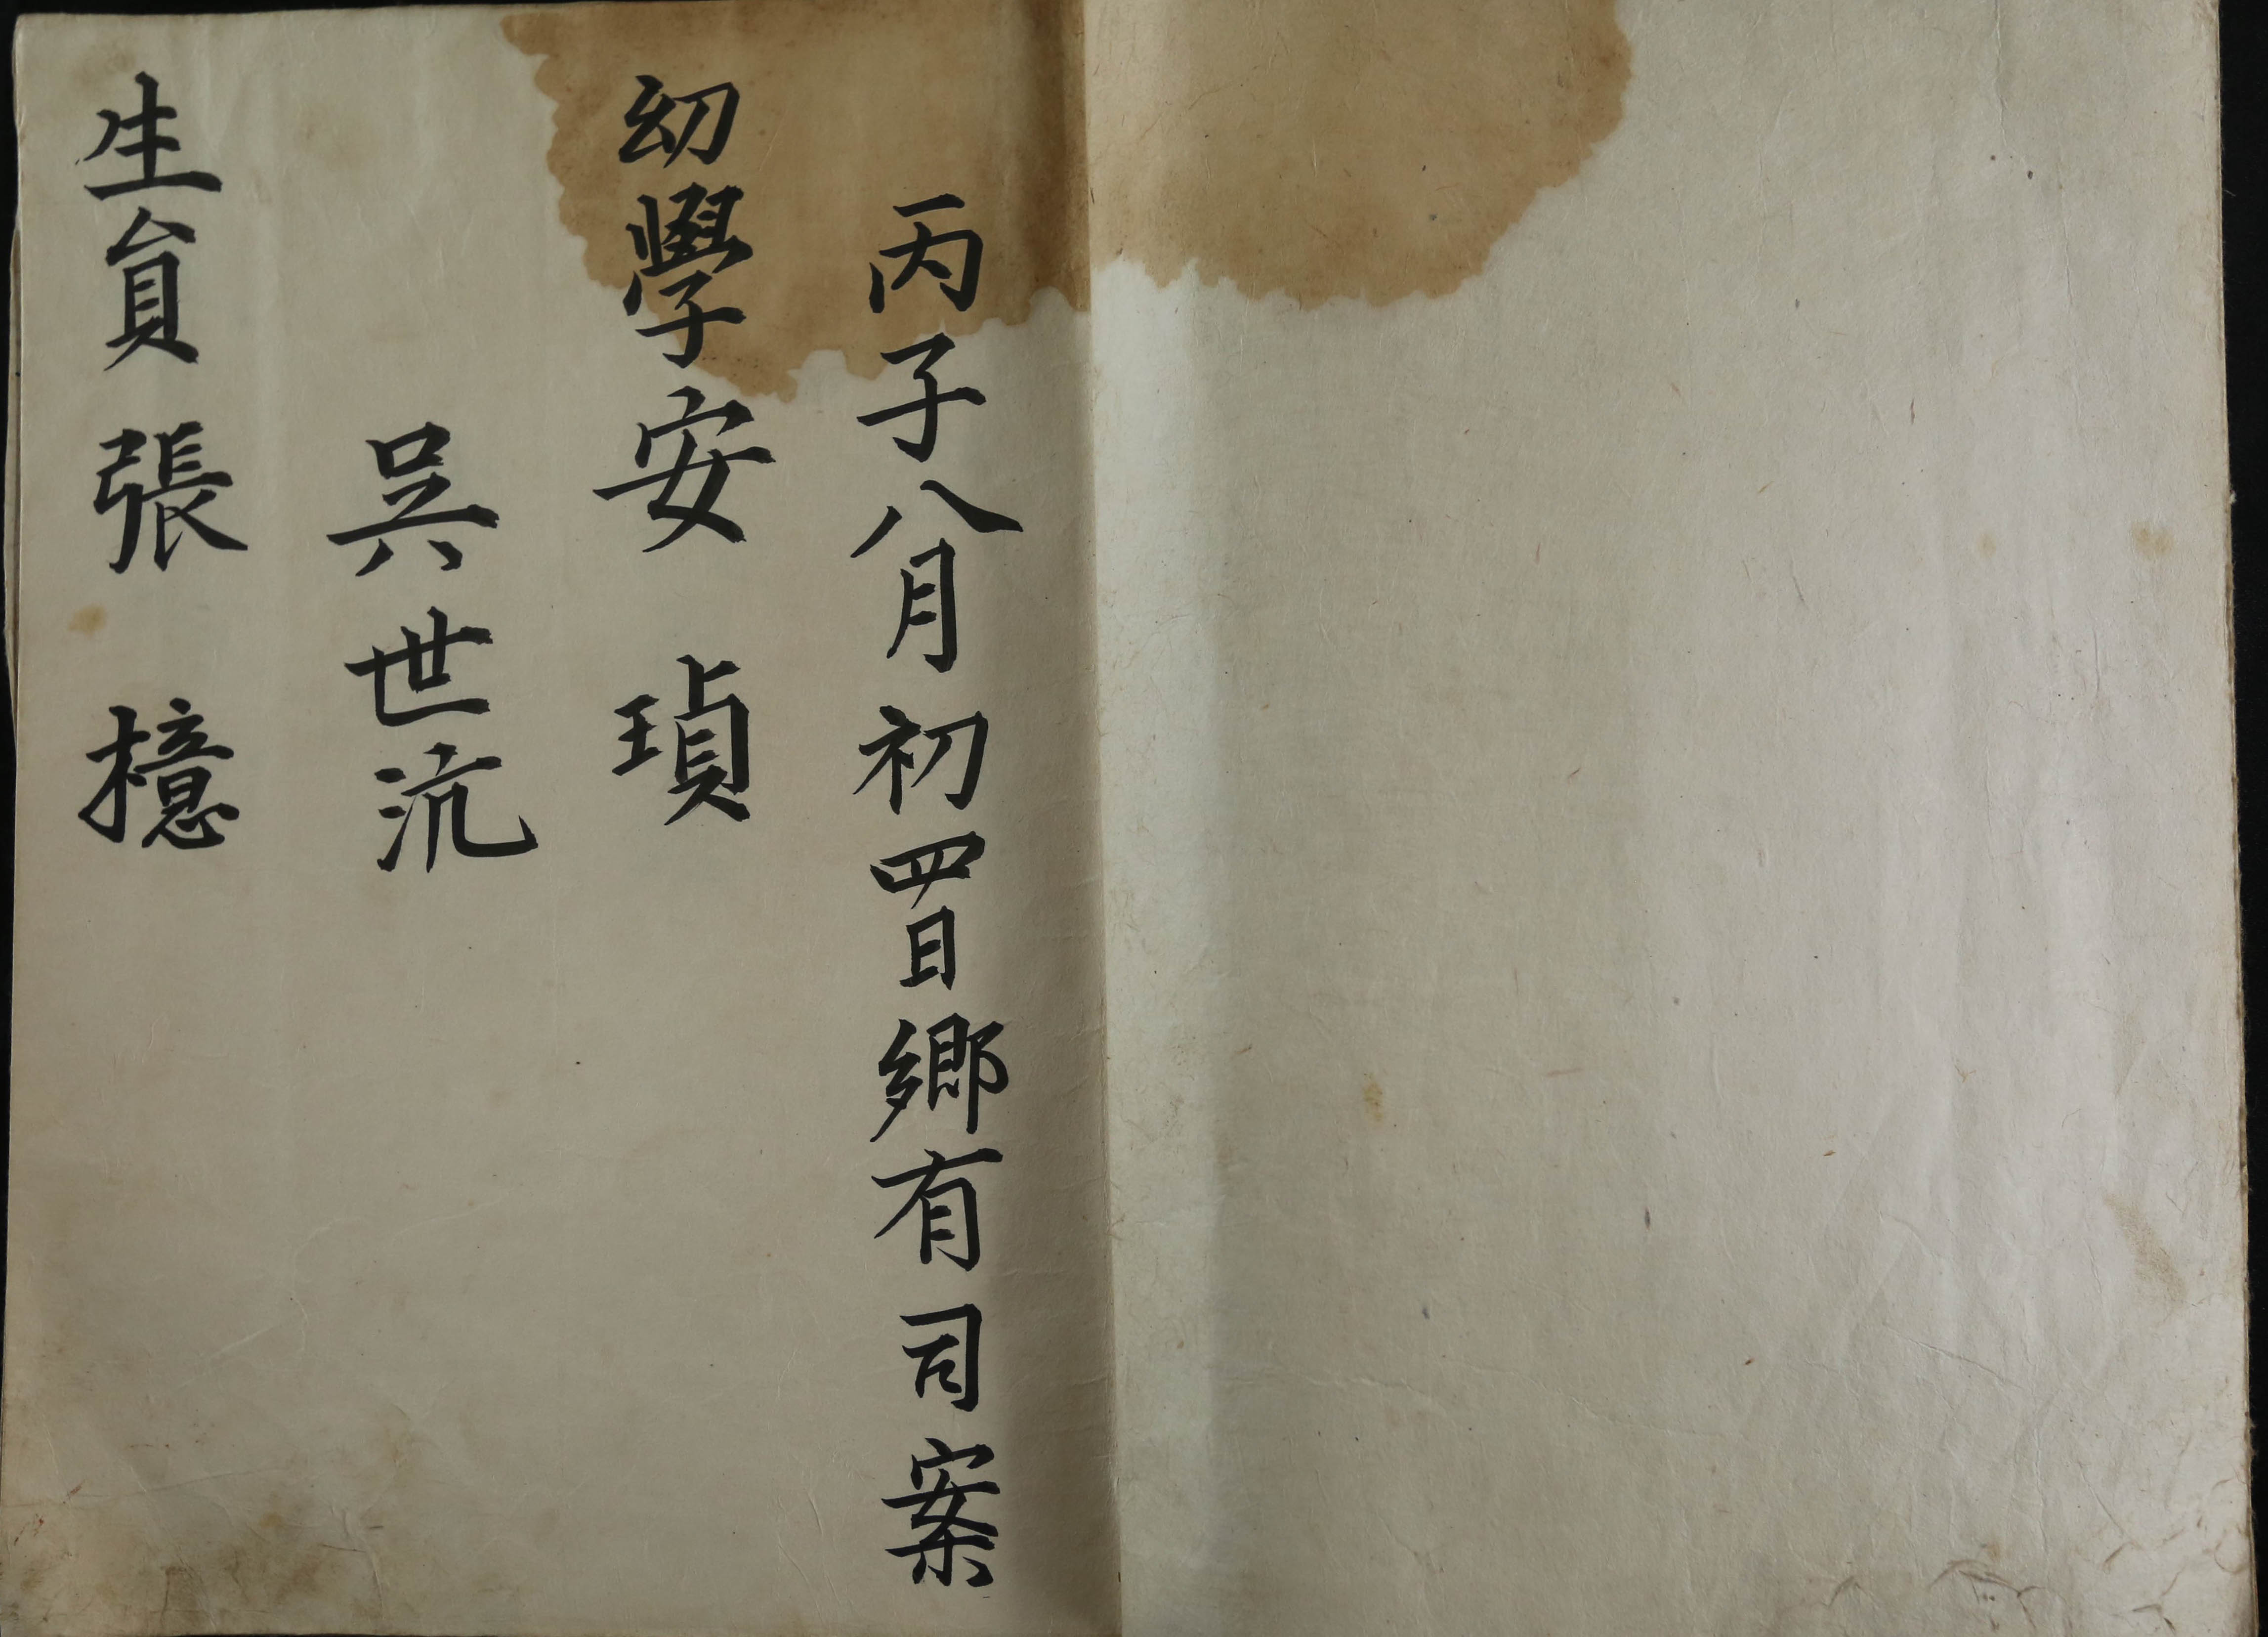 丙子八月初四日鄕有司案
幼學安瑱
吳世沆
生員張檍